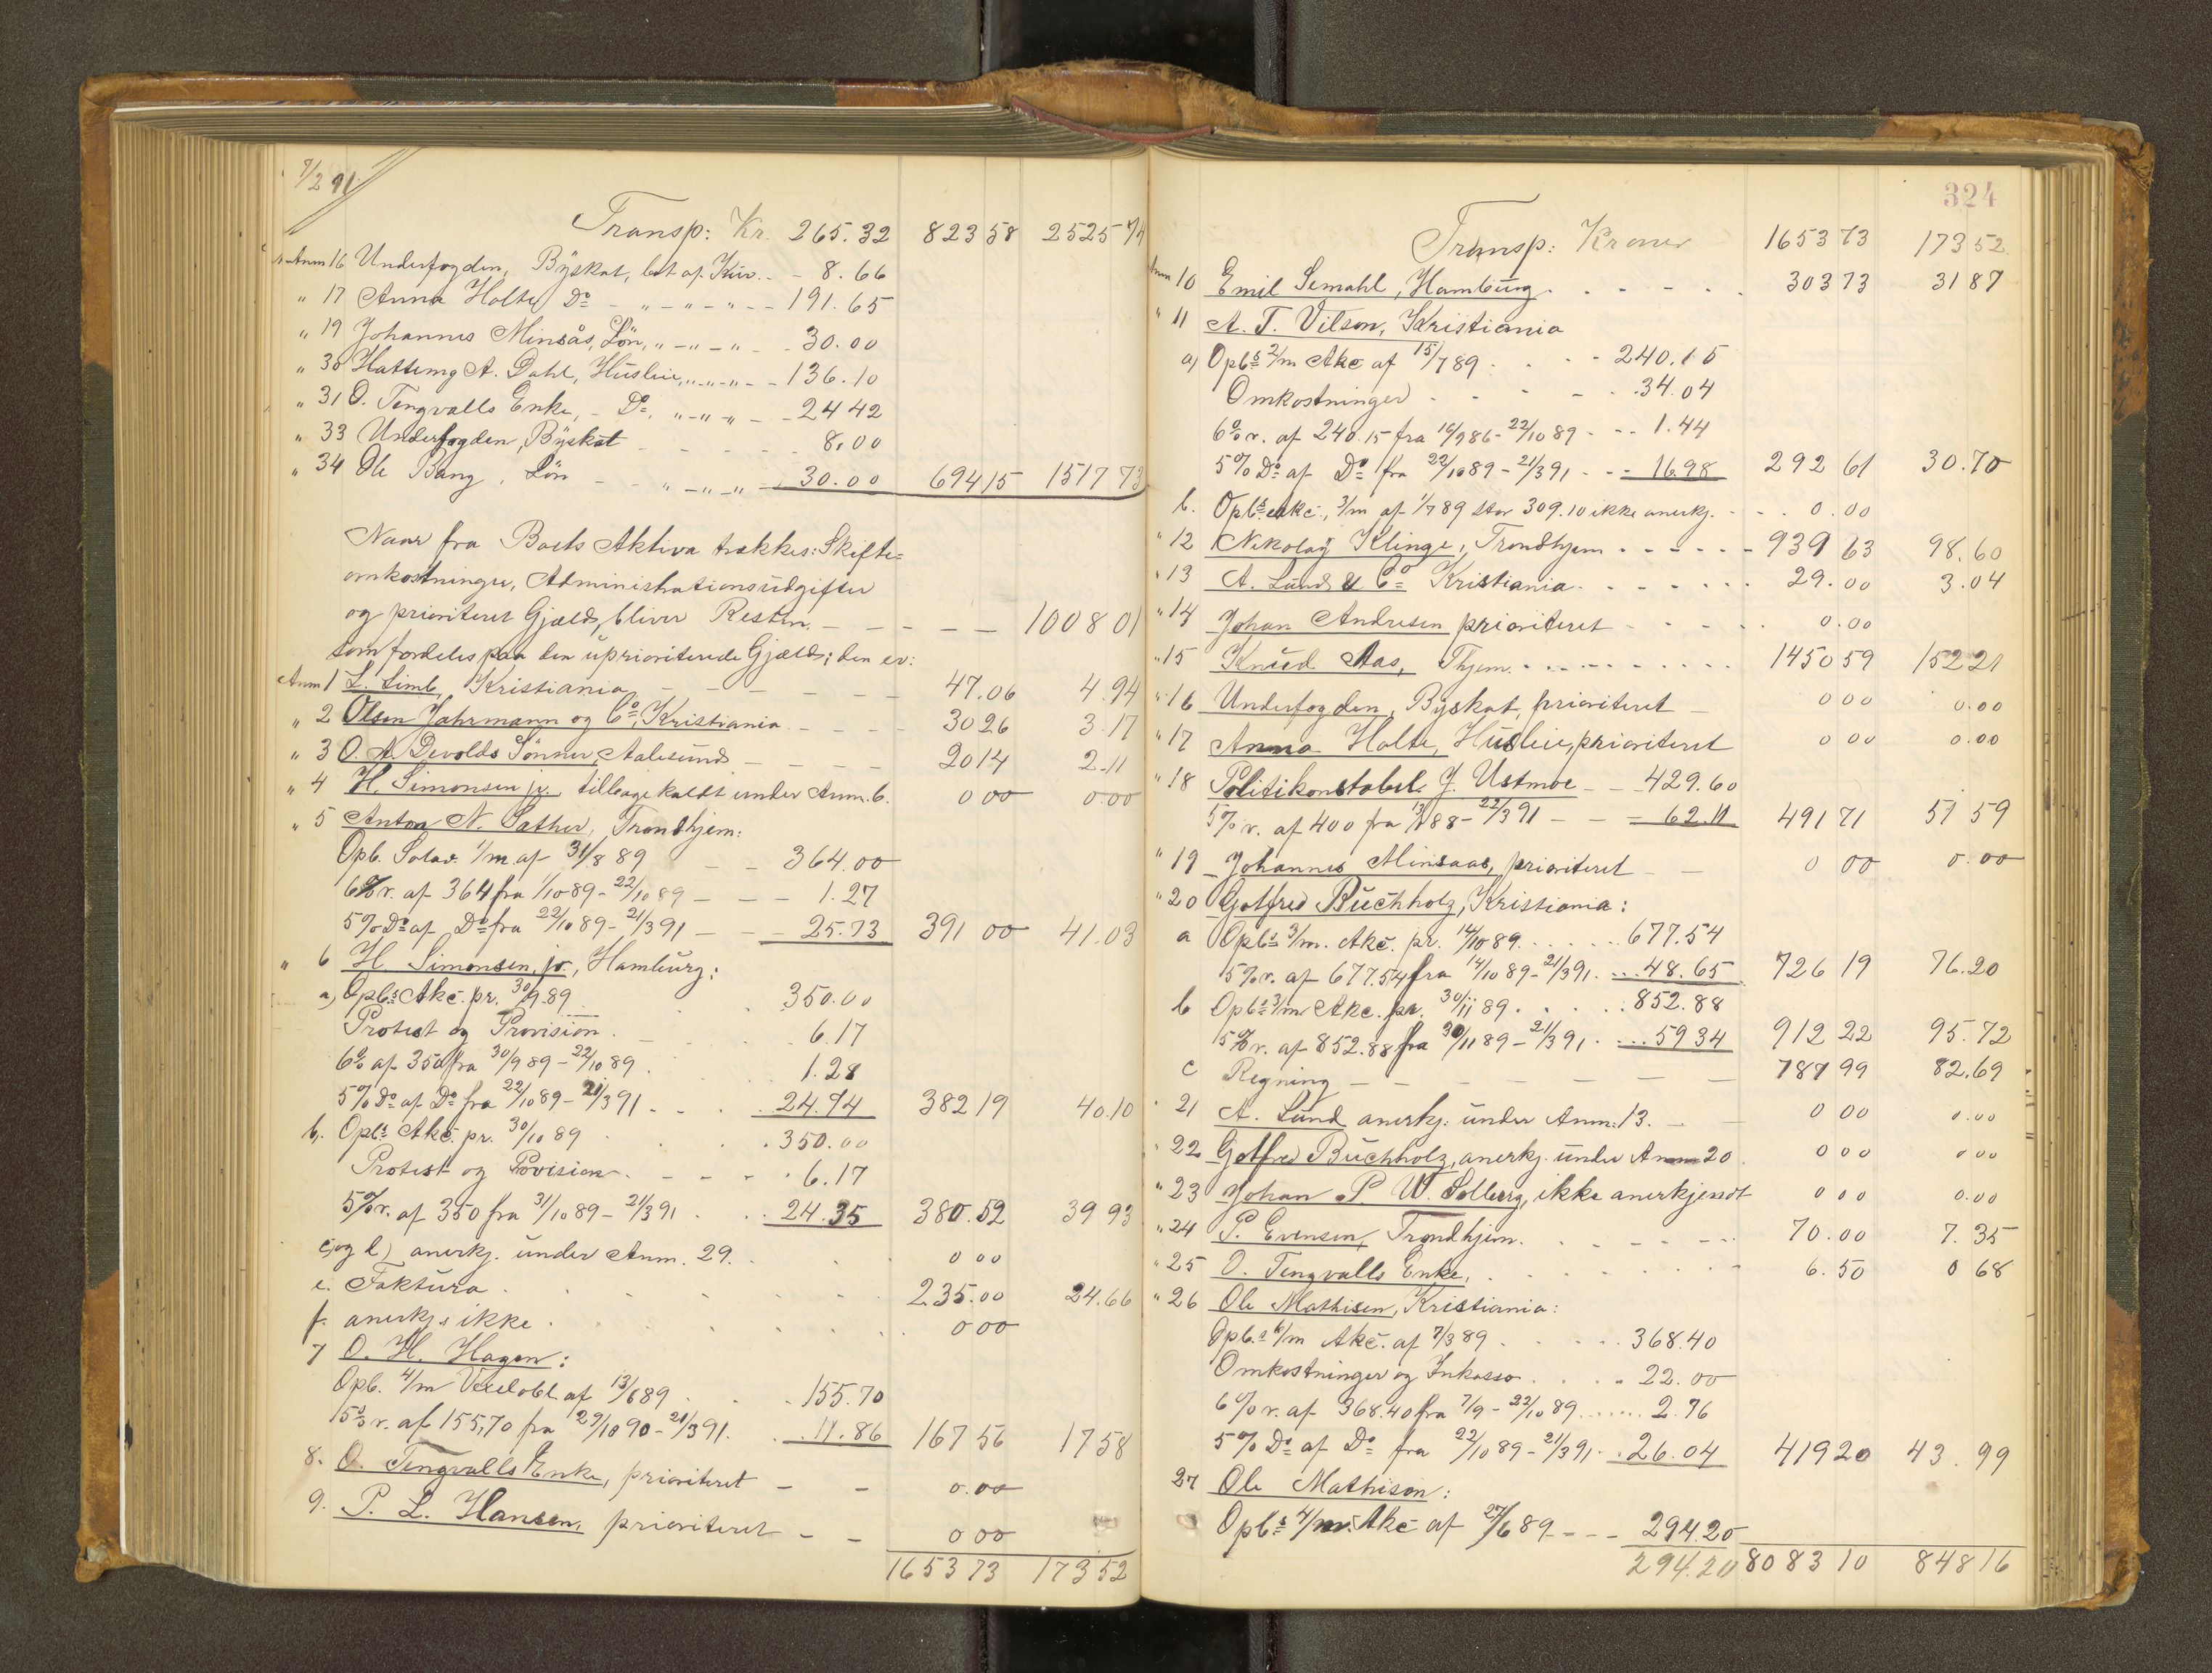 7/2 91.
Transp: Kr. 265.32 823 58 2525 74
Anm 16 Underfogden, Byskat, bet af Kur. - - 8.66
" 17 Anna Holte Do - " - " - " - - 191.65
" 19 Johannes Minsås, Lön, " - " - " - - 30.00
" 30 Hattemg A. Dahl, Husleie, " - " - " - - 136.10
" 31 O. Tengvalls Enke, - Do, " - " - " - - 24 42
" 33 Underfogden, Byskat - - - - - 8.00
" 34 Ole Bang, Lön - - " - " - " - 30.00 694 15 1517 73
Naar fra Boets Aktiva trækkes: Skifte=
omkostninger, Administrationsudgifter
og prioriteret Gjæld, bliver Resten - - - - - 1008 01
som fordeles paa den uprioriterede Gjæld; den er:
Anm 1 L. Simb, Kristiania - - - - - 47.06 4.94
" 2 Olsen Jahrmann og Co, Kristiania - - - - 30 26 3.17
" 3 O. A. Devolds Sönner, Aalesund - - - - 20 14 2.11
" 4 H. Simonsen jr. tilbagekaldt under Anm. 6. 0 00 0.00
" 5 Anton N. Sather, Trondhjem:
Opb. Solav. 1/m af 31/8 89 - - 364.00
6% r. af 364 fra 1/10 89 - 22/10 89 - - - 1.27
5% Do af Do fra 22/10 89 - 21/3 91 - - - 25.73 391 00 41.03
" 6 H. Simonsen, jr., Hamburg:
a) Opbs Akc. pr. 30/9 89 . . 350.00
Protest og Provision . - . . 6.17
6% af 350 fra 30/9 89 - 22/10 89 . . . 1.28
5% Do af Do fra 22/10 89 - 21/3 91 . . . 24.74 382 19 40.10
b. Opbs Akc. pr. 30/10 89 . . . . 350.00
Protest og Provision . - - - . 6.17
5% r. af 350 fra 31/10 89 - 21/3 91 . . . 24.35 380.52 39 93
c) og d) anerkj. under Anm. 29. . . . 0 00
e. Faktura . . . . . . 235.00 24.66
f. anerkjs ikke . . . . . . 0 00
7 O. H. Hagen:
Opb. 4/m Vexelobl. af 13/6 89 . . . 155.70
5% r. af 155,70 fra 29/10 90 - 21/3 91. . . 11.86 167 56 17 58
8. O. Tengvalls Enke, prioriteret - - 0.00
9. P. L. Hansen, prioriteret - - 0 00
1653 73 173 52
324
Transp: Kroner 1653 73 173 52.
Anm 10 Emil Semahl, Hamburg . . . - - . 303 73 31 87
" 11 A. T. Vilson, Kristiania
a, Opbs 2/m Akc af 15/7 89 . . . - 240.15
Omkostninger - - - - . 34.04
6% r. af 240.15 fra 16/9 86 - 22/10 89 - - - 1.44
5% Do af Do fra 22/10 89 - 21/3 91 - - - 16.98 292 61 30.70
b. Opbs akc., 3/m af 1/7 89 stor 309.10 ikke anerkj. - - . 0.00
" 12 Nikolay Klinge, Trondhjem . . - - - - 939 63 98.60
" 13 A. Lund & Co Kristiania . - - - - - . 29.00 3.04
" 14 Johan Andresen prioriteret - - - . 0.00
" 15 Knud Aas, Thjem. . . . - - - - - . . 1450 59 152 21
" 16 Underfogden, Byskat, prioriteret - 0 00 0.00
" 17 Anna Holte, Husleie, prioriteret 0 00 0.00
" 18 Politikonstabel J. Ustmoe - - 429.60
5% r. af 400 fra 13/1 88 - 22/3 91 - - - 62.11 491 71 51 59
" 19 Johannes Minsaas, prioriteret - - 0 00 0.00
" 20 Gotfred Buchholz, Kristiania:
a Opbs 3/m. Akc. pr. 14/10 89. . . . . . 677.54
5% r. af 677.54 fra 14/10 89 - 21/3 91. . . . 48.65 726 19 76.20
b Opbs 3/m Akc. pr. 30/11 89 . . . . . 852.88
5% r. af 852.88 fra 30/11 89 - 21/3 91. . . . 59 34 912 22 95.72
c Regning - - - - - - - 787 99 82.69
" 21 A. Lund anerkj. under Anm: 13. - - 0 00 0.00
" 22 Gotfred Buchholz, anerkj. under Anm 20 0 00 0 00
" 23 Johan P. W. Solberg, ikke anerkjendt 0 00 0.00
" 24 P. Evensen, Trondhjem. . - - - - - 70.00 7.35
" 25 O. Tengvalls Enke, . . . - - - - - 6.50 0 68
" 26 Ole Mathisen, Kristiania:
Opb.s 6/m Akc. af 7/3 89 . . . . . 368.40
Omkostninger og Inkasso . . . . 22.00
6% r. af 368.40 fra 7/9 - 22/10 89 . . . . . 2.76
5% Do af Do fra 22/10 89 - 21/3 91. . 26.04 419 20 43.99
27 Ole Mathison:
Opbs 4/m. Akc af 27/6 89 - - - 294.20
294.20 8083 10 848 16